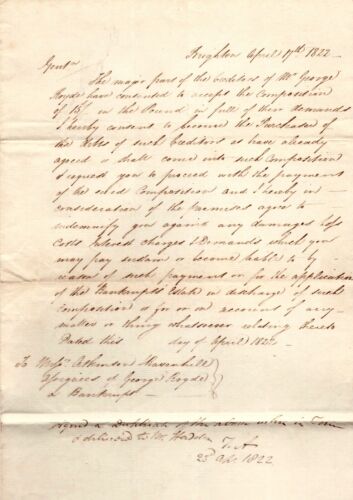 Brighton April 17th 1822
Gentn
The major part of the Creditors of Mr George
Hoyde have consented to accept the Composition
of 15/ in the Pound in full of their demands
I hereby consent to become the Purchaser of
the Debts of such Creditors as have already
agreed or shall come into such Composition
I request you to proceed with the payment
of the said Composition and I hereby in
consideration of the premises agree to
indemnify you against any damages loss
Costs Interest charges & Demands which you
may sustain or become liable to by
reason of such payment or for the application
of the Bankrupts Estate in discharge of such
Composition or for or on account of any
matter or thing whatsoever relating hereto
Dated this day of April 1822
To Messrs Atkinson
Assignees of George Hoyde
a Bankrupt
Signed a Duplicate of the above when in Town
& delivered to Mr
23d Apl 1822